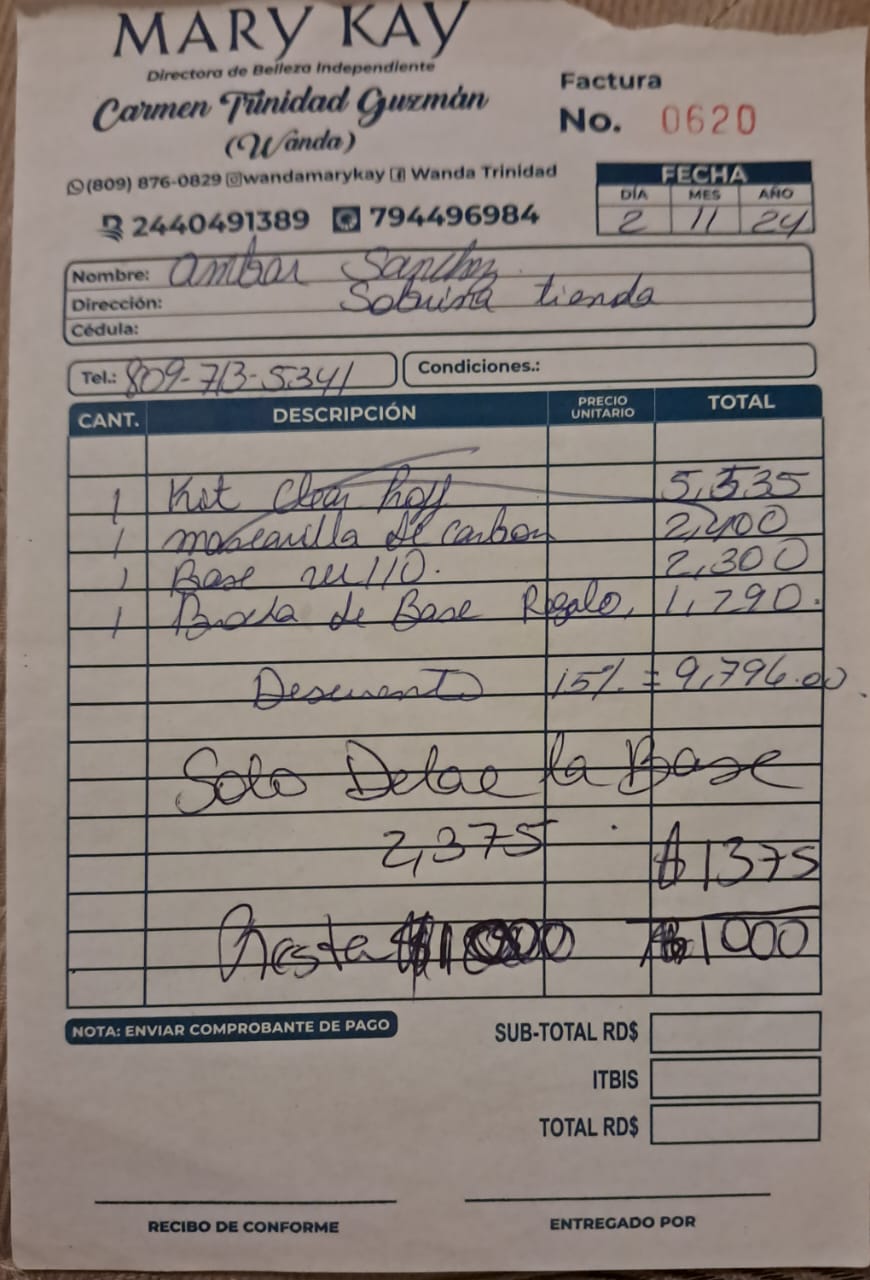 MARY KAY
Directora de Belleza Independiente
Carmen Trinidad Guzmán
(Wanda)
Factura
No. 0620
(809) 876-0829 wandamarykay Wanda Trinidad
2440491389 794496984
FECHA
DÍA MES AÑO
2 11 24
Nombre: Ambar Sanchz
Dirección: Sobrina tienda
Cédula:
Tel.: 809-713-5341 Condiciones.:
CANT. DESCRIPCIÓN PRECIO UNITARIO TOTAL
1 Kit Clear 5,535
1 mascarilla de carbon 2,400
1 Base 110. 2,300
1 Brocha de Base Regalo, 1,290.
Descuento 15% = 9,796.00
Solo Debe la Base
2,375 $1375
Resta $1000 1000
NOTA: ENVIAR COMPROBANTE DE PAGO
SUB-TOTAL RD$
ITBIS
TOTAL RD$
RECIBO DE CONFORME ENTREGADO POR